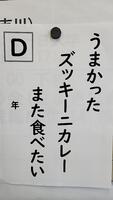 うまかった
ズッキーニカレー
また食べたい
D
年